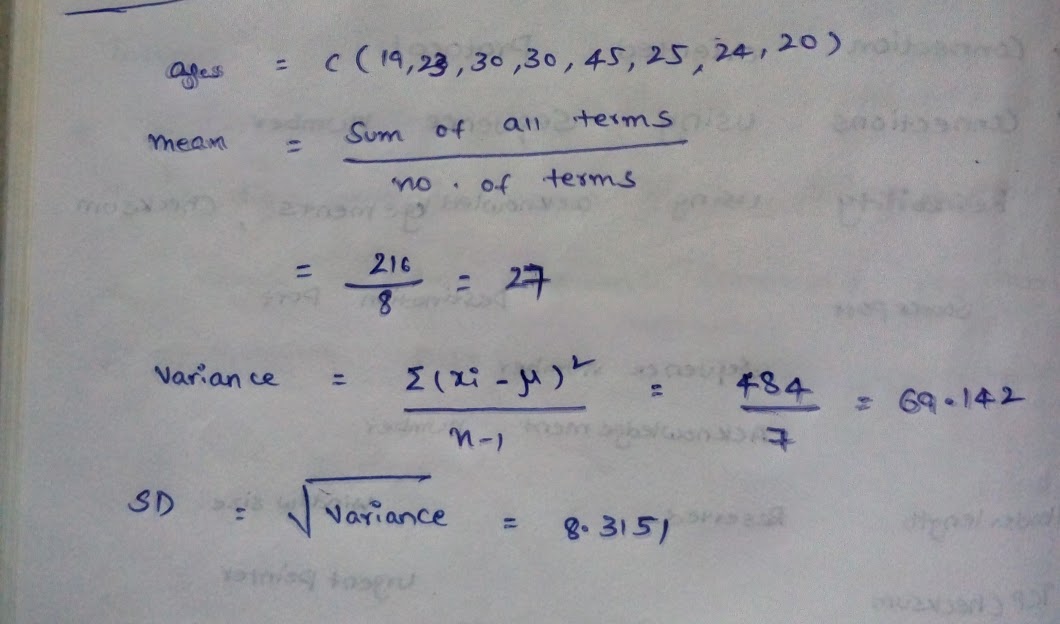 ages = c(19,23,30,30,45,25,24,20)
mean = Sum of all terms / no. of terms
= 216/8 = 27
Variance = Σ(xi - μ)² / n-1 = 484/7 = 69.142
SD = √Variance = 8.3151